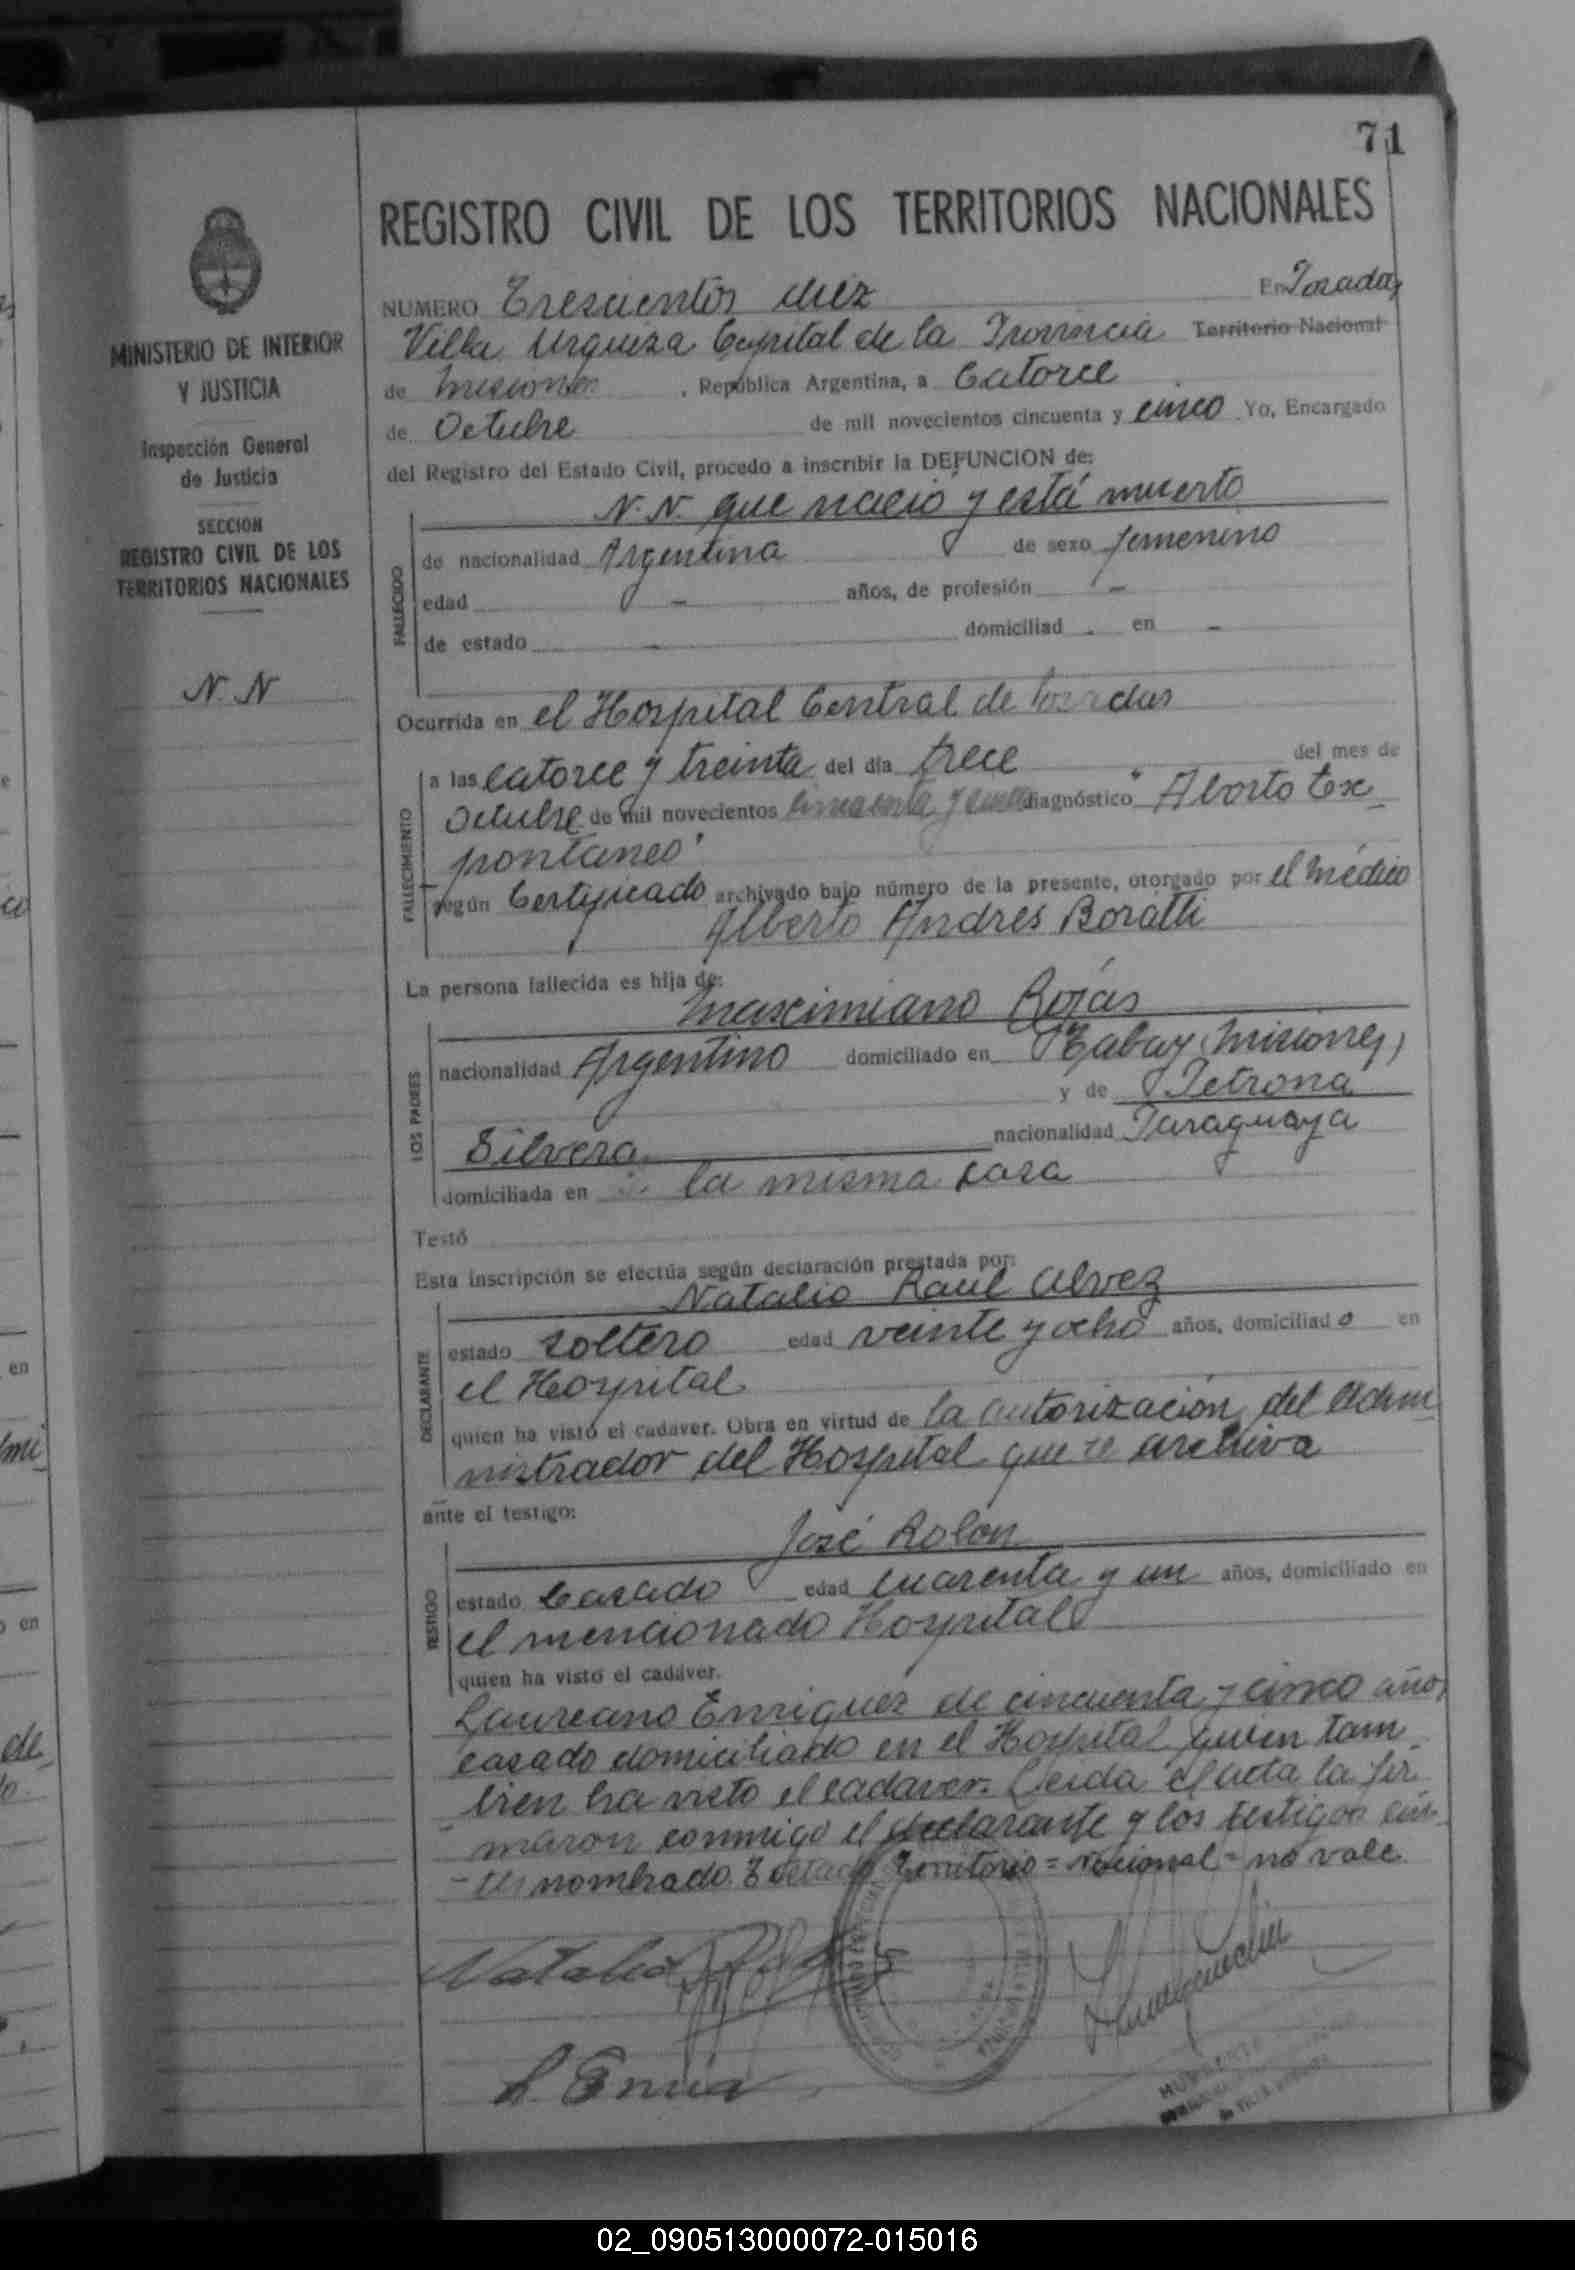 71
REGISTRO CIVIL DE LOS TERRITORIOS NACIONALES
MINISTERIO DE INTERIOR
Y JUSTICIA
Inspección General
de Justicia
SECCION
REGISTRO CIVIL DE LOS
TERRITORIOS NACIONALES
N. N
NUMERO Trescientos diez En Posadas
Villa Urquiza Capital de la Provincia Territorio Nacional
de Misiones, República Argentina, a Catorce
de Octubre de mil novecientos cincuenta y cinco Yo, Encargado
del Registro del Estado Civil, procedo a inscribir la DEFUNCION de:
N. N. que nació y está muerto
FALLECIDO
de nacionalidad Argentina de sexo femenino
edad - años, de profesión -
de estado - domiciliad - en -
Ocurrida en el Hospital Central de Posadas
FALLECIMIENTO
a las catorce y treinta del día trece del mes de
Octubre de mil novecientos cincuenta y cinco diagnóstico "Aborto Ex-
pontaneo"
según Certificado archivado bajo número de la presente, otorgado por el médico
Alberto Andres Boratti
La persona fallecida es hija de:
Maximiano Rojas
LOS PADRES
nacionalidad Argentino domiciliado en Tabay (Misiones)
y de Petrona
Silvera nacionalidad Paraguaya
domiciliada en la misma casa
Testó
Esta inscripción se efectúa según declaración prestada por:
Natalio Raul Alvez
DECLARANTE
estado soltero edad veinte y ocho años, domiciliado en
el Hospital
quien ha visto el cadaver. Obra en virtud de la autorización del Admi
nistrador del Hospital que se archiva
ante el testigo:
José Rolón
TESTIGO
estado Casado edad cuarenta y un años, domiciliado en
el mencionado Hospital
quien ha visto el cadáver.
Laureano Enriquez de cincuenta y cinco años,
casado domiciliado en el Hospital quien tam-
bien ha visto el cadaver. Leida el acta la fir
maron conmigo el declarante y los testigos an-
tes nombrado. Testado Territorio = nacional = no vale
Natalio
02_090513000072-015016